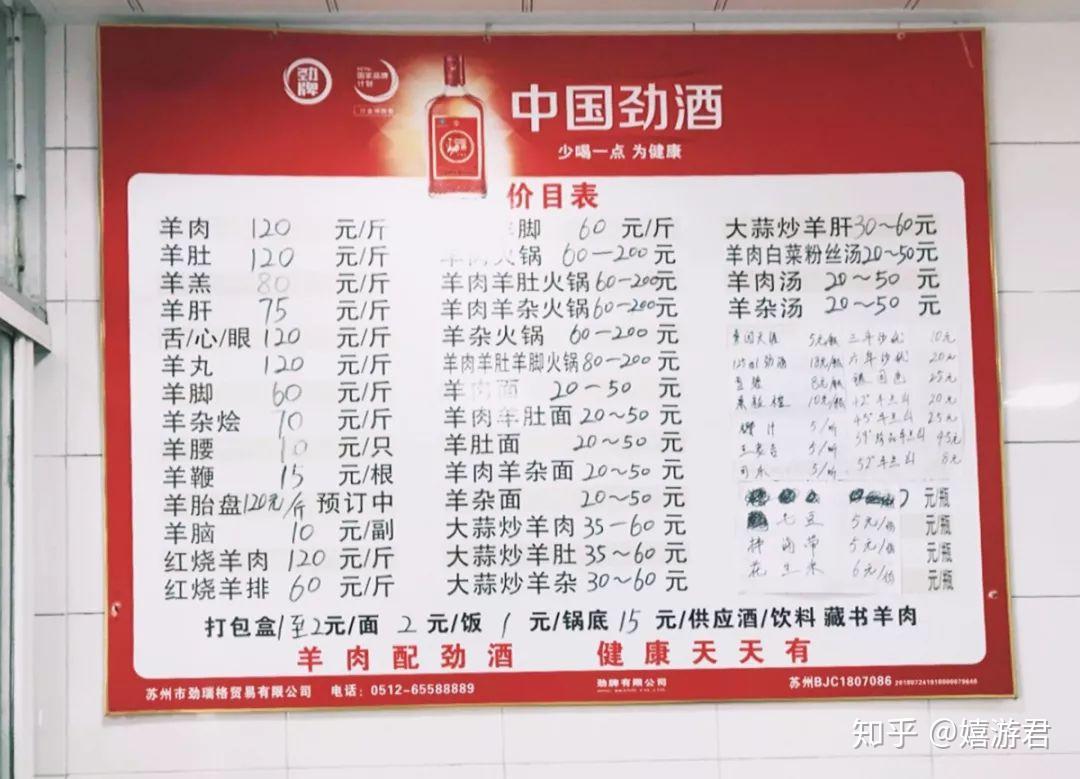 劲牌
国家品牌
计划
中国劲酒
少喝一点 为健康
价目表
羊肉 120 元/斤
羊肚 120 元/斤
羊羔 80 元/斤
羊肝 75 元/斤
舌/心/眼 120 元/斤
羊丸 120 元/斤
羊脚 60 元/斤
羊杂烩 70 元/斤
羊腰 10 元/只
羊鞭 15 元/根
羊胎盘 120元/斤 预订中
羊脑 10 元/副
红烧羊肉 120 元/斤
红烧羊排 60 元/斤
脚 60 元/斤
羊肉火锅 60-200元
羊肉羊肚火锅 60-200元
羊肉羊杂火锅 60-200元
羊杂火锅 60-200元
羊肉羊肚羊脚火锅 80-200元
羊肉面 20-50 元
羊肉羊肚面 20~50 元
羊肚面 20~50 元
羊肉羊杂面 20~50 元
羊杂面 20~50 元
大蒜炒羊肉 35-60 元
大蒜炒羊肚 35~60 元
大蒜炒羊杂 30~60 元
大蒜炒羊肝 30~60元
羊肉白菜粉丝汤 20~50元
羊肉汤 20~50 元
羊杂汤 20~50 元
5元/瓶 三年 10元
125ml 劲酒 18元/瓶 六年 20元
雪碧 8元/瓶 25元
果粒橙 10元/瓶 42° 20元
5/听 45° 25元
王老吉 5/听 59° 45元
可乐 5/听 52° 8元
元/瓶
毛豆 5元/份 元/瓶
拌海带 5元/份 元/瓶
花生米 6元/份 元/瓶
打包盒 1至2元/面 2 元/饭 1 元/锅底 15 元/供应酒/饮料 藏书羊肉
羊肉配劲酒 健康天天有
苏州市劲瑞格贸易有限公司 电话：0512-65588889
劲牌有限公司
苏州BJC1807086
知乎 @嬉游君